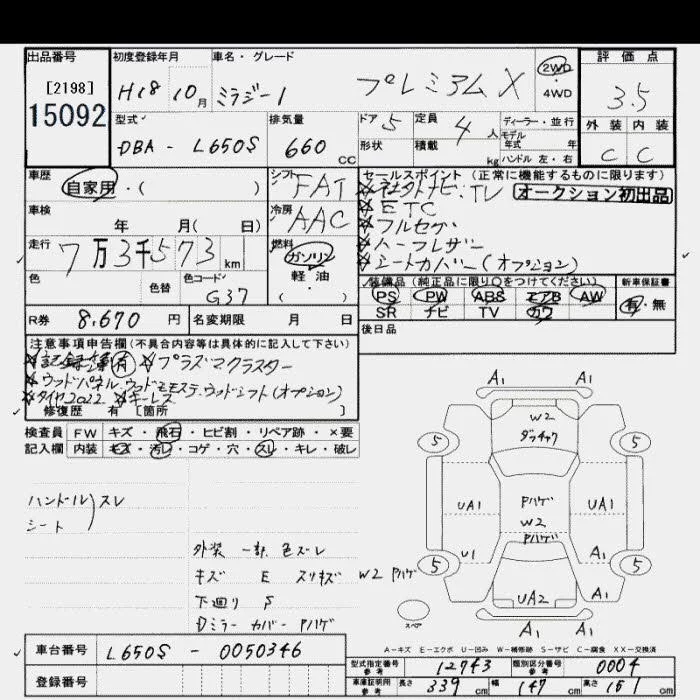 出品番号 初度登録年月 車名・グレード 評価点
[2198]
15092
H18 10月 ミラジーノ プレミアムX 2WD・4WD 3.5
型式 排気量 ドア 5 定員 4人 ディーラー・並行 外装 内装
DBA - L650S 660 CC 形状 積載 kg モデル年式 年 ハンドル 左・右 C C
車歴 シフト セールスポイント (正常に機能するものに限ります)
自家用・( ) FAT ☆社外ナビ・TV オークション初出品
車検 冷房 ☆ETC
年 月(日) AAC ☆フルセグ
走行 燃料 ☆ハーフレザー
7万3千573km ガソリン ☆シートカバー(オプション)
色 色替 色コード 軽油 装備品 (純正品に限り○をつけてください) 新車保証書
G37 ・( ) PS PW ABS エアB AW 有・無
SR ナビ TV カワ
R券 8,670円 名変期限 月 日 後日品
注意事項申告欄 (不具合内容等は具体的に記入して下さい)
☆記録簿(有) ☆プラズマクラスター
☆ウッドパネル.ウッドモモステ.ウッドシフト(オプション)
☆タイヤ2022 ☆キーレス
修復歴 有 [箇所 ]
検査員 FW キズ・飛石・ヒビ割・リペア跡・×要
記入欄 内装 キズ・汚レ・コゲ・穴・スレ・キレ・破レ
ハンドル)スレ
シート
外装 一部 色ズレ
キズ E スリキズ W2 Pハゲ
下廻り S
Dミラーカバー Pハゲ
A1 A1
W2
ダッチャク
5 5
UA1 Pハゲ UA1
W2
Pハゲ
U1 A1
5 5
UA2 A1
スペア A1 A1
A-キズ E-エクボ U-凹み W-補修跡 S-サビ C-腐食 XX-交換済
車台番号 L650S - 0050346 型式指定番号 参考 12743 類別区分番号 参考 0004
登録番号 車庫証明用 参考 長さ 339cm 幅 147cm 高さ 151cm